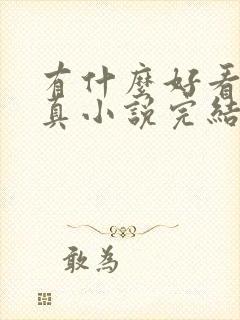 有什麼好看
真小說完結
敢為